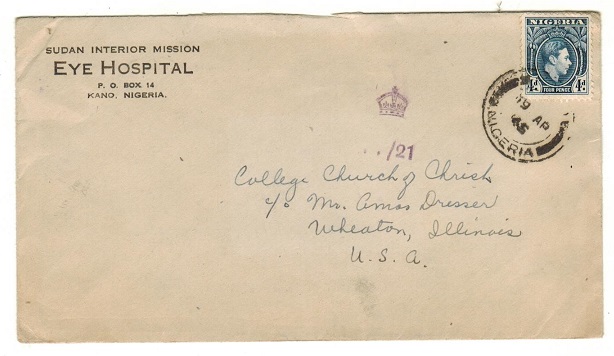 SUDAN INTERIOR MISSION
EYE HOSPITAL
P. O. BOX 14
KANO, NIGERIA.
NIGERIA
FOUR PENCE
19 AP
45
NIGERIA
/21
College Church of Christ
c/o Mr. Amos Dresser
Wheaton, Illinois
U. S. A.